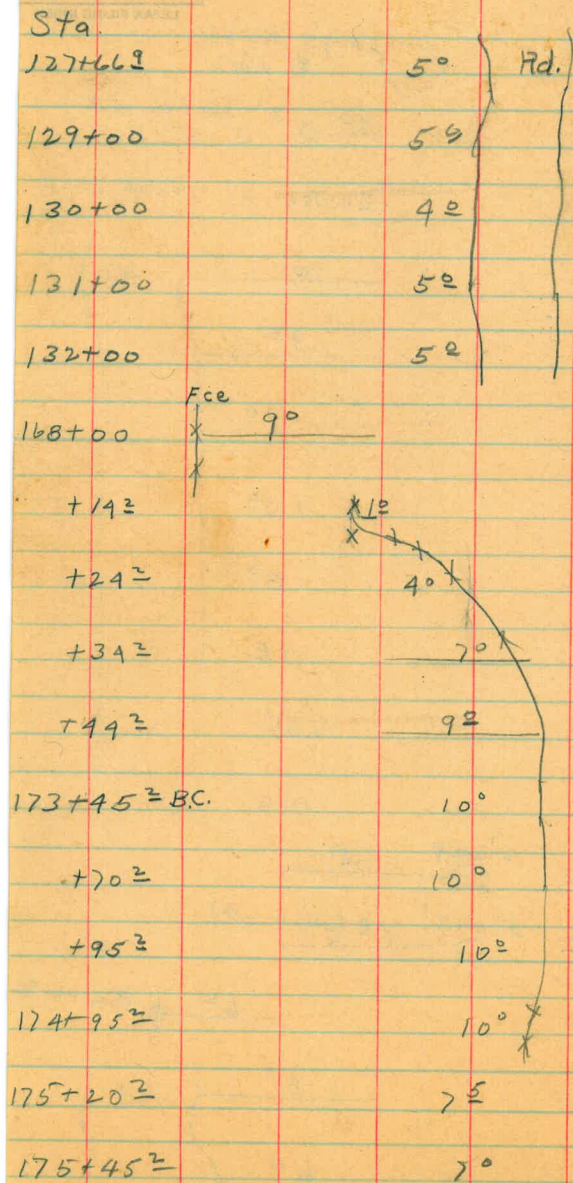 Sta.
127+66⁹ 5⁰ Rd.
129+00 5⁹
130+00 4⁰
131+00 5⁰
132+00 5⁰
Fce
168+00 9⁰
+14² 1⁰
+24² 4⁰
+34² 7⁰
+44² 9⁰
173+45² B.C. 10⁰
+70² 10⁰
+95² 10⁰
174+95² 10⁰
175+20² 7⁵
175+45² 7⁰